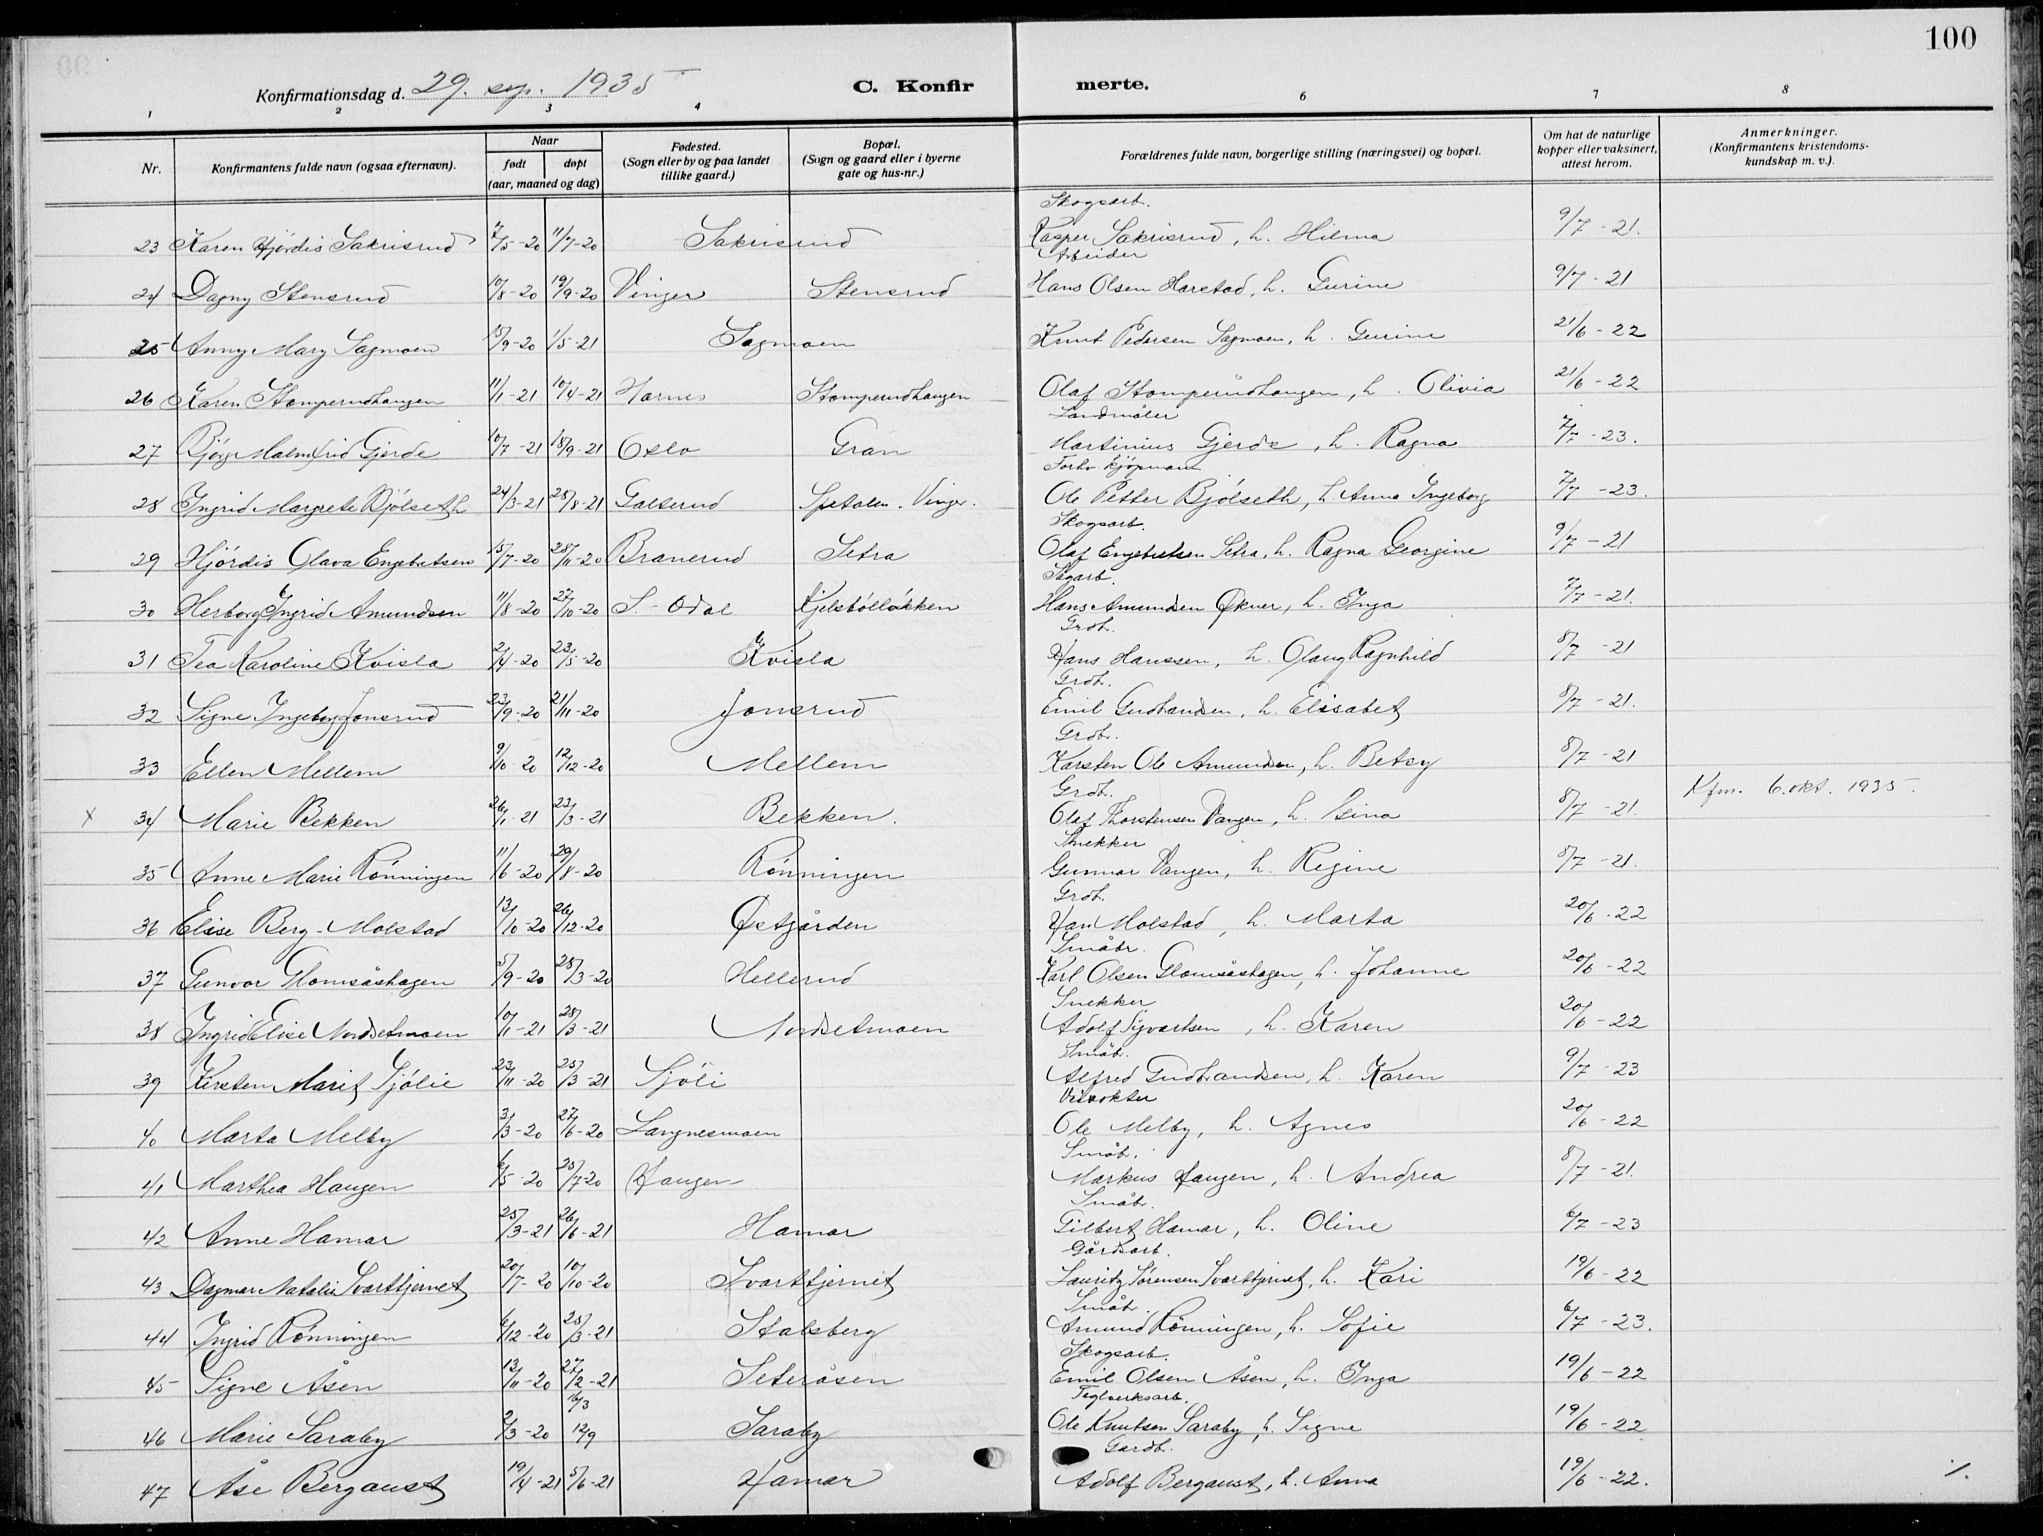 100
Konfirmationsdag d. 29. sep. 1935
C. Konfirmerte.
1 2 3 4 6 7 8
Nr. Konfirmantens fulde navn (ogsaa efternavn). Naar født døpt (aar, maaned og dag) Fødested. (Sogn eller by og paa landet tillike gaard.) Bopæl. (Sogn og gaard eller i byerne gate og hus-nr.) Forældrenes fulde navn, borgerlige stilling (næringsvei) og bopæl. Om hat de naturlige kopper eller vaksinert, attest herom. Anmerkninger. (Konfirmantens kristendomskundskap m. v.).
Skogsarb.
23 Karen Hjördis Sakrisrud 7/5-20 11/7-20 Sakrisrud Kasper Sakrisrud, h. Hilma 9/7-21.
Arbeider
24 Dagny Stensrud 10/8-20 19/9-20 Vinger Stensrud Hans Olsen Harstad, h. Gurine 9/7-21
25 Anny Mary Sagmoen 15/9-20 1/5-21 Sagmoen Knut Pedersen Sagmoen, h. Gurine 21/6-22
26 Karen Stomperudhaugen 11/1-21 10/4-21 Hornes Stomperudhaugen Olaf Stomperudhaugen, h. Olivia 21/6-22
Landmåler
27 Bjørg Malmfrid Gjerde 10/7-21 18/9-21 Oslo Gran Martinius Gjerde, h. Ragna 7/7-23.
Forhv. kjøpmann
28 Ingrid Margrete Bjölseth 24/3-21 28/8-21 Galterud Spetalen. Vinger. Ole Petter Bjölseth, h. Anna Ingeborg 7/7-23.
Skogsarb.
29 Hjördis Olava Engebetsen 15/7-20 28/11-20 Branerud Setra Olaf Engebretsen Setra, h. Ragna Georgine 9/7-21
Sagarb.
30 Herborg Ingrid Amundsen 11/8-20 27/10-20 S.-Odal Kjelsbölløkken Hans Amundsen Økner, h. Inga 7/7-21.
Grdb.
31 Tea Karoline Kvisla 2/4-20 23/5-20 Kvisla Hans Hanssen, h. Olaug Ragnhild 8/7-21
Grdb.
32 Signe Ingeborg Jonsrud 23/9-20 21/11-20 Jonsrud Emil Gudbrandsen, h. Elisabet 8/7-21.
Grdbr.
33 Ellen Mellem 9/10-20 12/12-20 Mellem Karsten Ole Amundsen, h. Betsy 8/7-21
Grdb.
x 34 Marie Bekken 26/1-21 23/3-21 Bekken. Olaf Thorstensen Vangen, h. Gina 8/7-21. Kfm. 6. okt. 1935.
Snekker
35 Anne Marie Rönningen 11/6-20 29/8-20 Rönningen Gunnar Vangen, h. Regine 8/7-21.
Grdb.
36 Elise Berg-Molstad 13/10-20 26/12-20 Østgården Han Molstad, h. Marta 20/6-22
Småbr.
37 Gunvor Glomsåshagen 5/9-20 28/3-20 Hellerud Karl Olsen Glomsåshagen, h. Johanne 20/6-22
Snekker
38 Ingrid Elise Nordsetmoen 10/1-21 28/3-21 Nordsetmoen Adolf Sigvartsen, h. Karen 20/6-22
Småb.
39 Kirsten Marit Sjölie 23/11-20 25/3-21 Sjöli Alfred Gudbrandsen, h. Karen 9/7-23
40 Marta Melby 3/3-20 27/6-20 Langnesmoen Ole Melby, h. Agnes 20/6-22
Småb.
41 Marthea Haugen 6/5-20 25/7-20 Haugen Markus Haugen, h. Andrea 8/7-21.
Småb.
42 Anne Hamar 25/3-21 26/6-21 Hamar Gilbert Hamar, h. Oline 6/7-23
Gårdsarb.
43 Dagmar Natalie Svarttjernet 20/7-20 10/10-20 Svarttjernet Lauritz Sørensen Svarttjernet, h. Kari 19/6-22
Småb.
44 Ingrid Rönningen 6/12-20 25/3-21 Stalsberg Amund Rönningen, h. Sofie 6/7-23.
Skogsarb.
45 Signe Åsen 13/11-20 27/2-21 Seteråsen Emil Olsen Åsen, h. Inga 19/6-22
Teglverksarb.
46 Marie Saraby 2/3-20 16/3 12/9 Saraby Ole Knutsen Saraby, h. Signe 19/6-22
Gardb.
47 Åse Bergaust 19/4-21 5/6-21 Hamar Adolf Bergaust, h. Anna 19/6-22.